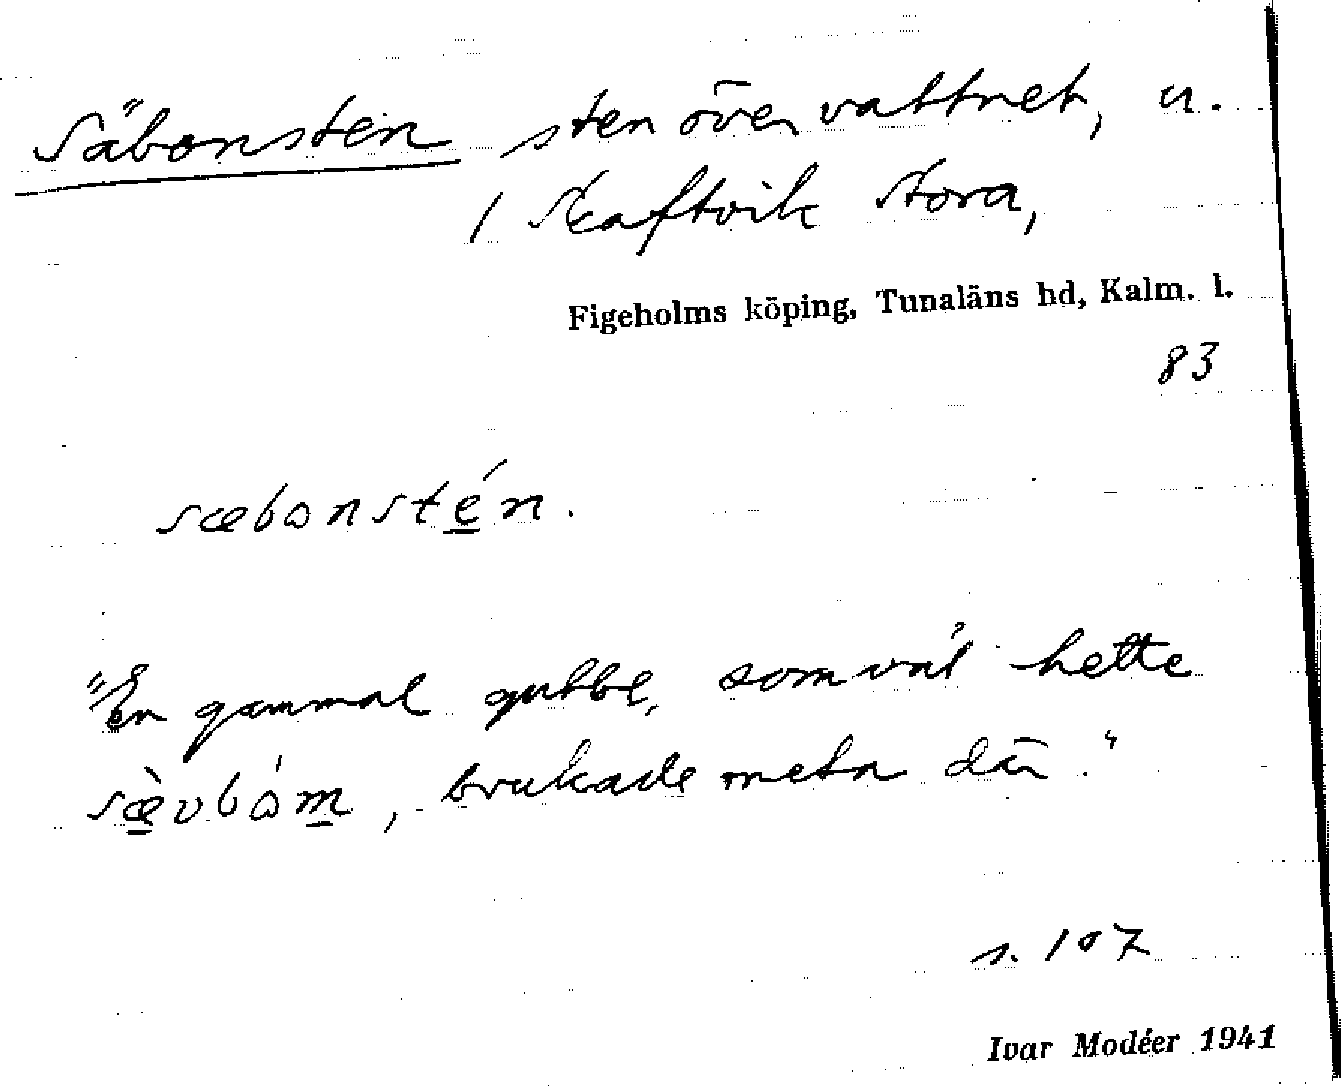 Säbonsten sten över vattnet, u.
1 Skaftvik Stora,
Figeholms köping, Tunaläns hd, Kalm. l.
83
sæbɷnstén.
"En gammal gubbe, som väl hette
sæ̀vbɷ́m, brukade meta där."
s. 107
Ivar Modéer 1941